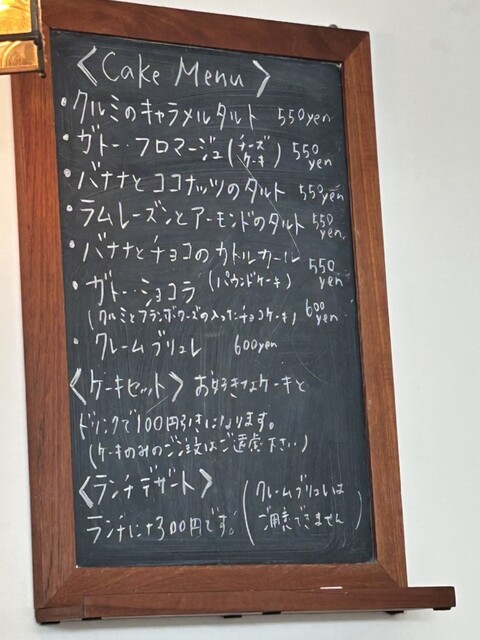 〈Cake Menu〉
・クルミのキャラメルタルト 550yen
・ガトー・フロマージュ(チーズケーキ) 550yen
・バナナとココナッツのタルト 550yen
・ラムレーズンとアーモンドのタルト 550yen
・バナナとチョコのカトルカール(パウンドケーキ) 550yen
・ガトー・ショコラ 600yen
(クルミとフランボワーズの入ったチョコケーキ)
・クレームブリュレ 600yen
〈ケーキセット〉 お好きなケーキと
ドリンクで100円引きになります。
(ケーキのみのご注文はご遠慮下さい)
〈ランチデザート〉
ランチに+300円です。(クレームブリュレはご用意できません)